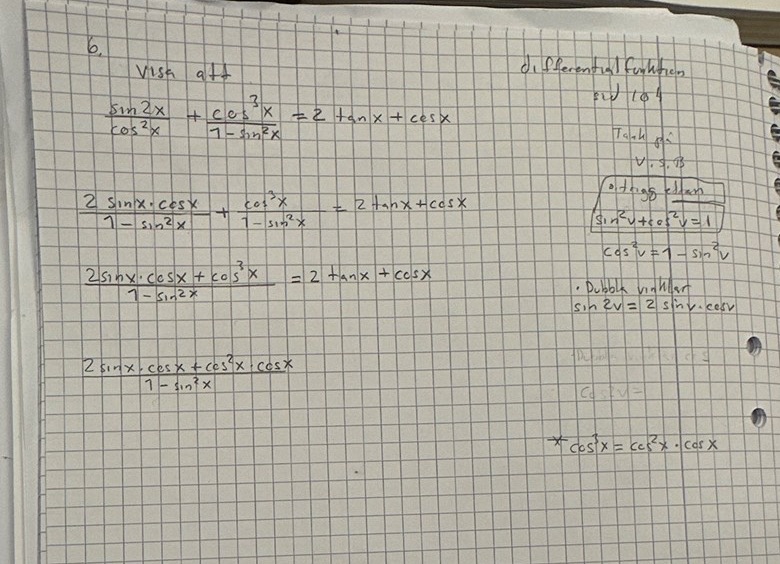 6.
Visa att
sin2x/cos²x + cos³x/1-sin²x = 2 tanx + cosx
2 sinx·cosx/1-sin²x + cos³x/1-sin²x = 2 tanx+cosx
2sinx·cosx + cos³x/1-sin²x = 2 tanx + cosx
2 sinx·cosx+cos²x·cosx/1-sin²x
differential funktion
sid 104
Tänk på
V.S.B
trigg ettan
sin²v+cos²v=1
cos²v=1-sin²v
· Dubbla vinklar
sin 2v = 2 sinv·cosv
cos2v =
* cos³x = cos²x · cosx